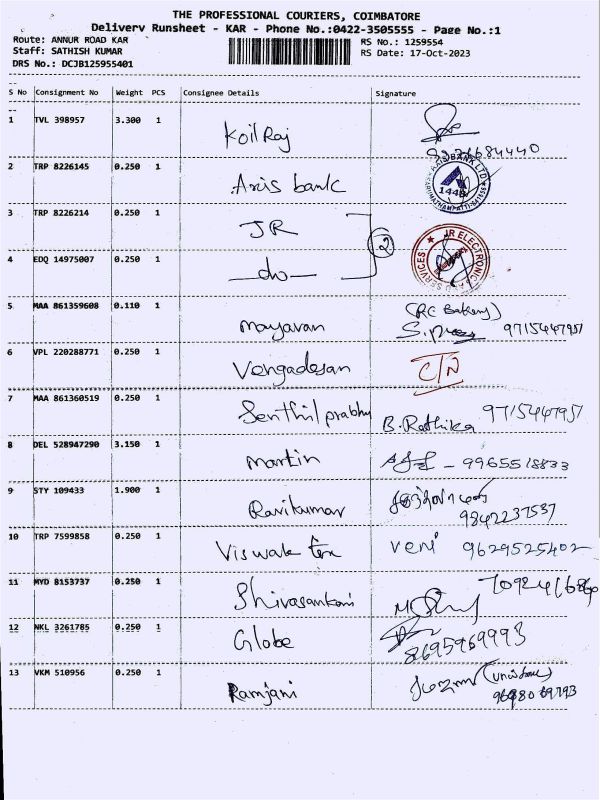 THE PROFESSIONAL COURIERS, COIMBATORE
Delivery Runsheet - KAR - Phone No.:0422-3505555 - Page No.:1
Route: ANNUR ROAD KAR
RS No.: 1259554
Staff: SATHISH KUMAR
RS Date: 17-Oct-2023
DRS No.: DCJB125955401
S No Consignment No Weight PCS Consignee Details Signature
1 TVL 398957 3.300 1 Koil Raj
2 TRP 8226145 0.250 1 Axis bank
1448
3 TRP 8226214 0.250 1 JR
2
JR ELECTRONIC
SERVICES
4 EDQ 14975007 0.250 1 —do—
5 MAA 861359608 0.110 1 mayavan
(RC Bakery)
9715447951
6 VPL 220288771 0.250 1 Vengadesan
7 MAA 861360519 0.250 1 Senthil prabhu B. Rathika 9715447951
8 DEL 528947290 3.150 1 martin - 9965518833
9 STY 109433 1.900 1 Ravikumar
9842237537
10 TRP 7599858 0.250 1 Viswak tex veni 9629525402
11 MYD 8153737 0.250 1 Shivasankari
12 NKL 3261785 0.250 1 Globe
8695969993
13 VKM 510956 0.250 1 Ramjani